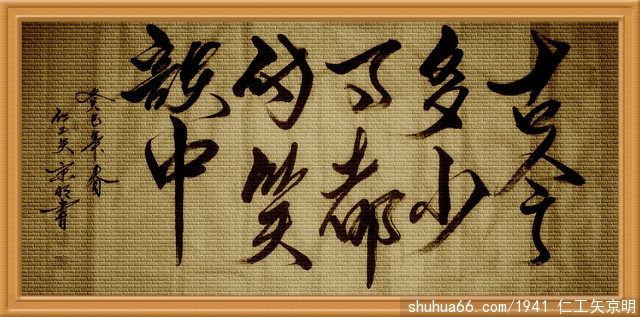 古今
多少
事都
付笑
談中
癸巳年春
仁工矢京明書
shuhua66.com/1941 仁工矢京明